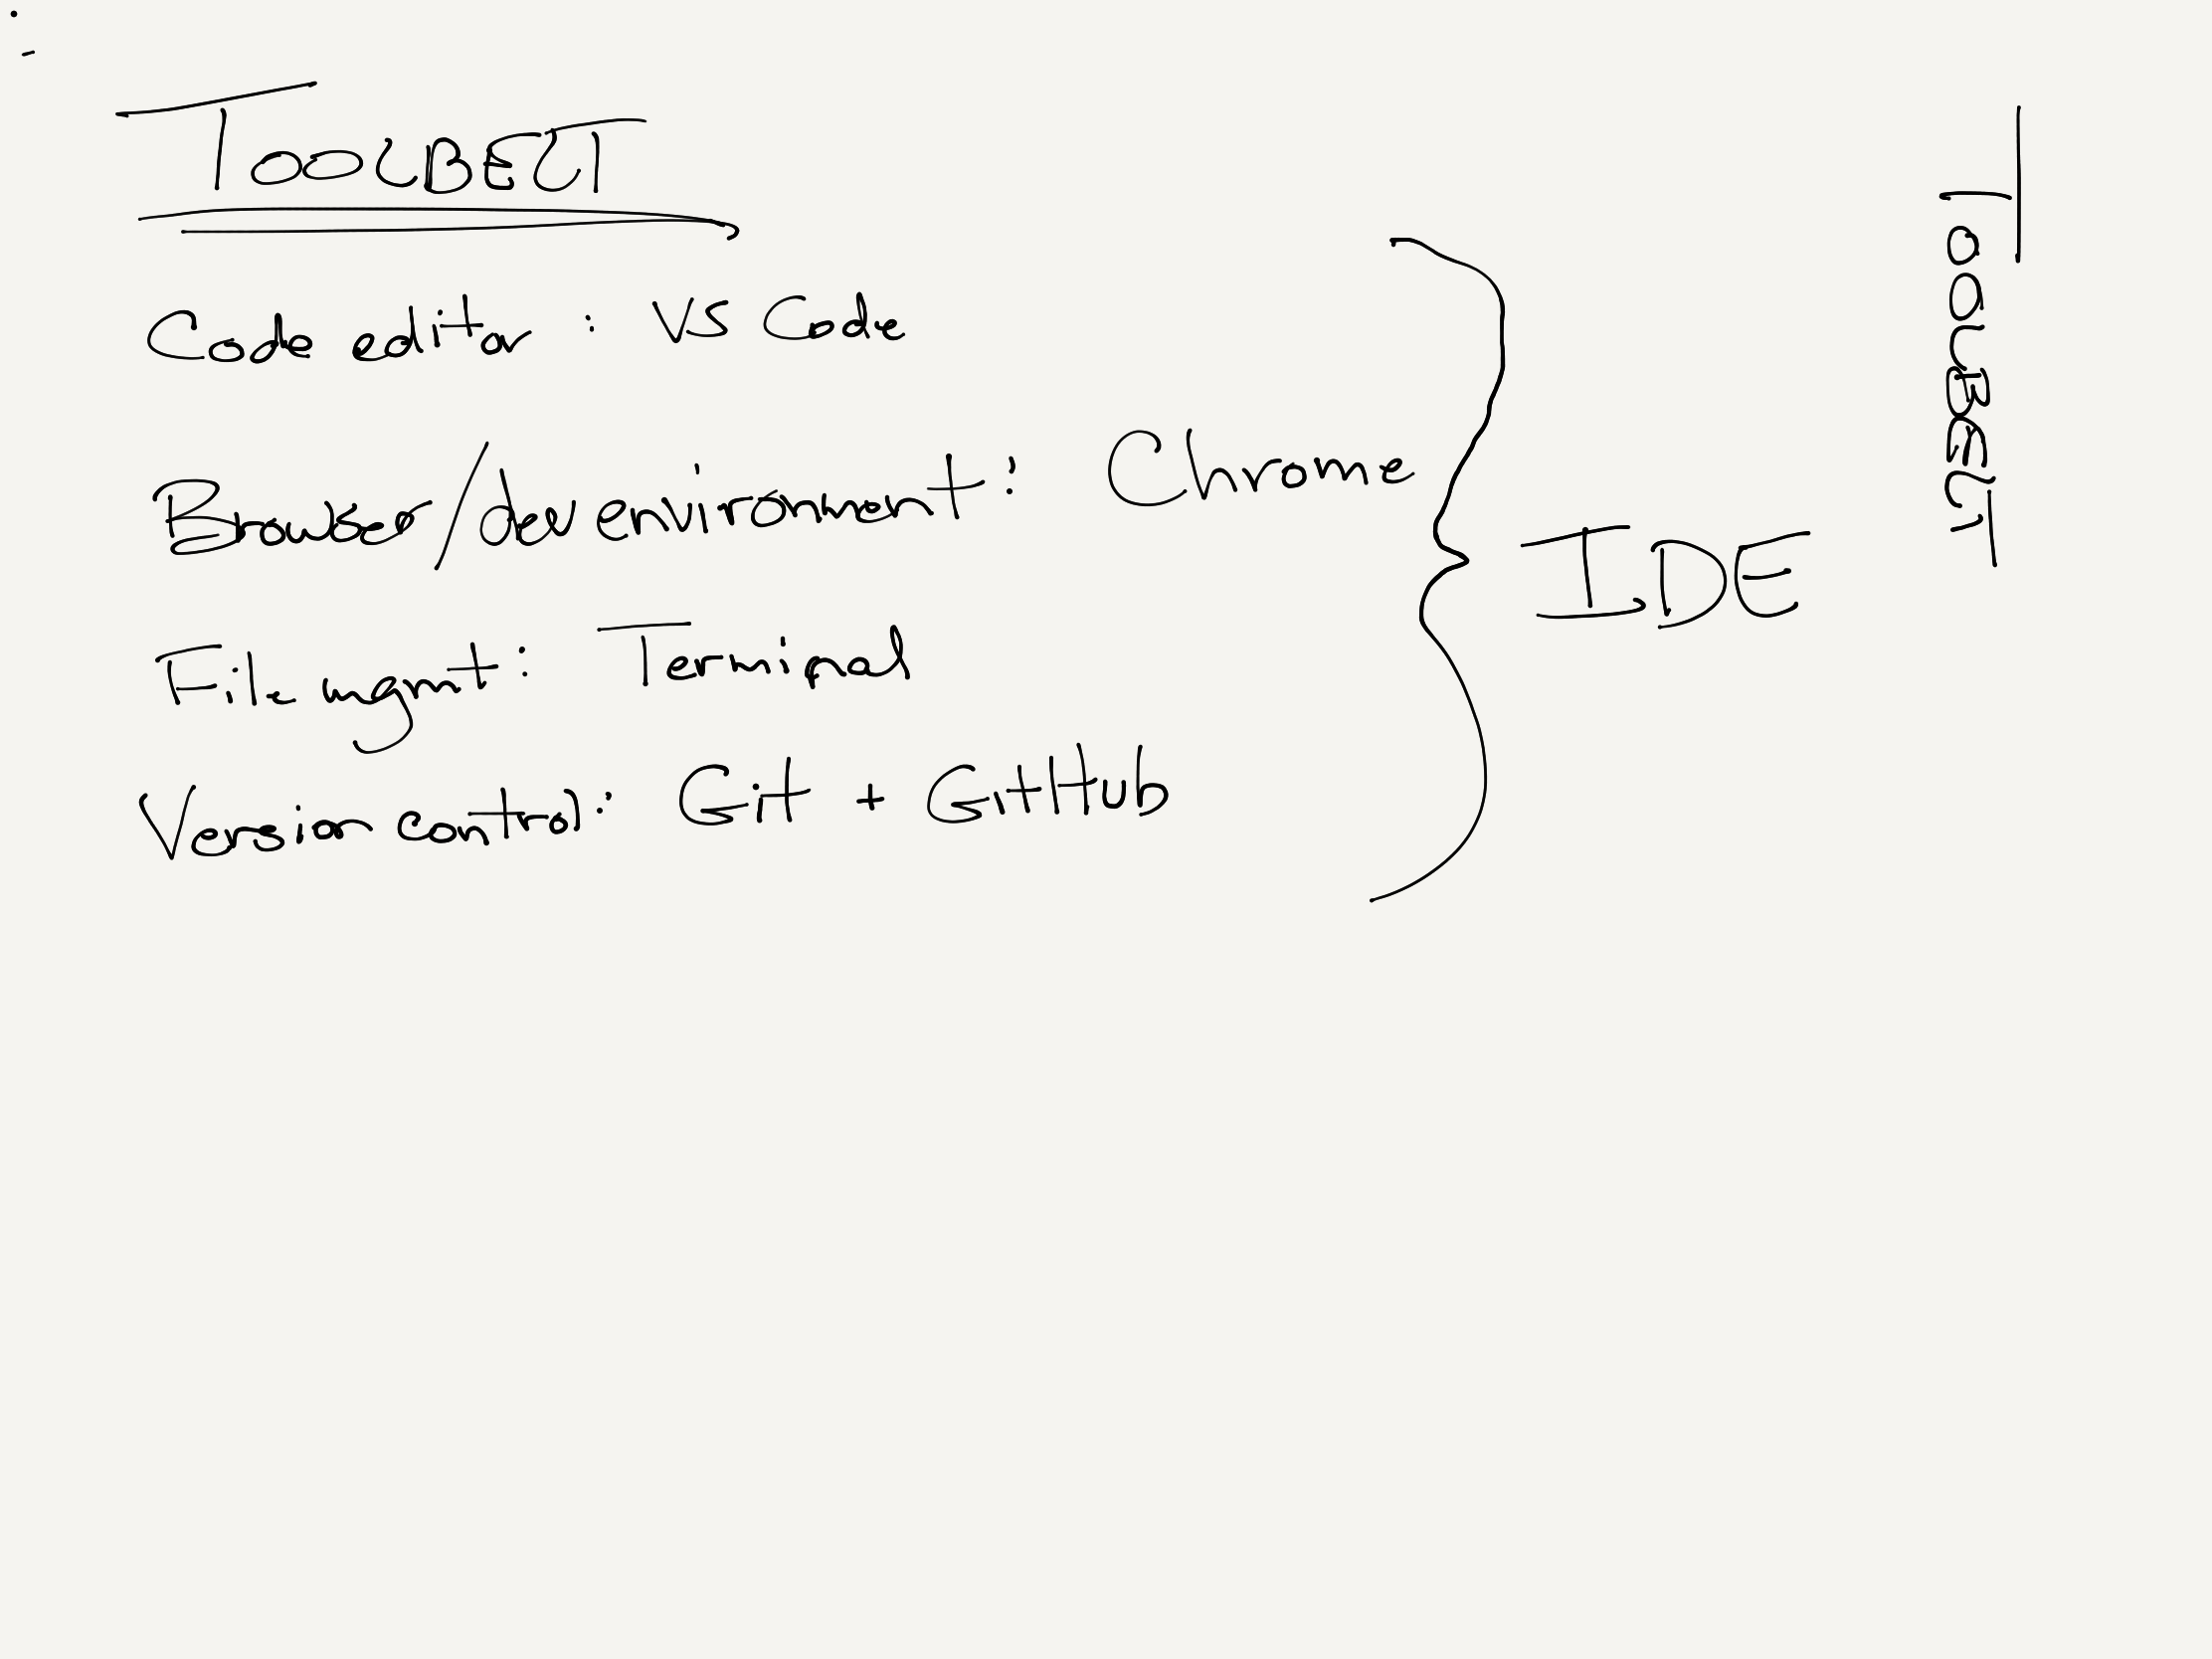 TOOLBELT
Code editor : VS Code
Browser/dev environment: Chrome
File mgmt: Terminal
Version control: Git + GitHub
IDE
TOOLBELT